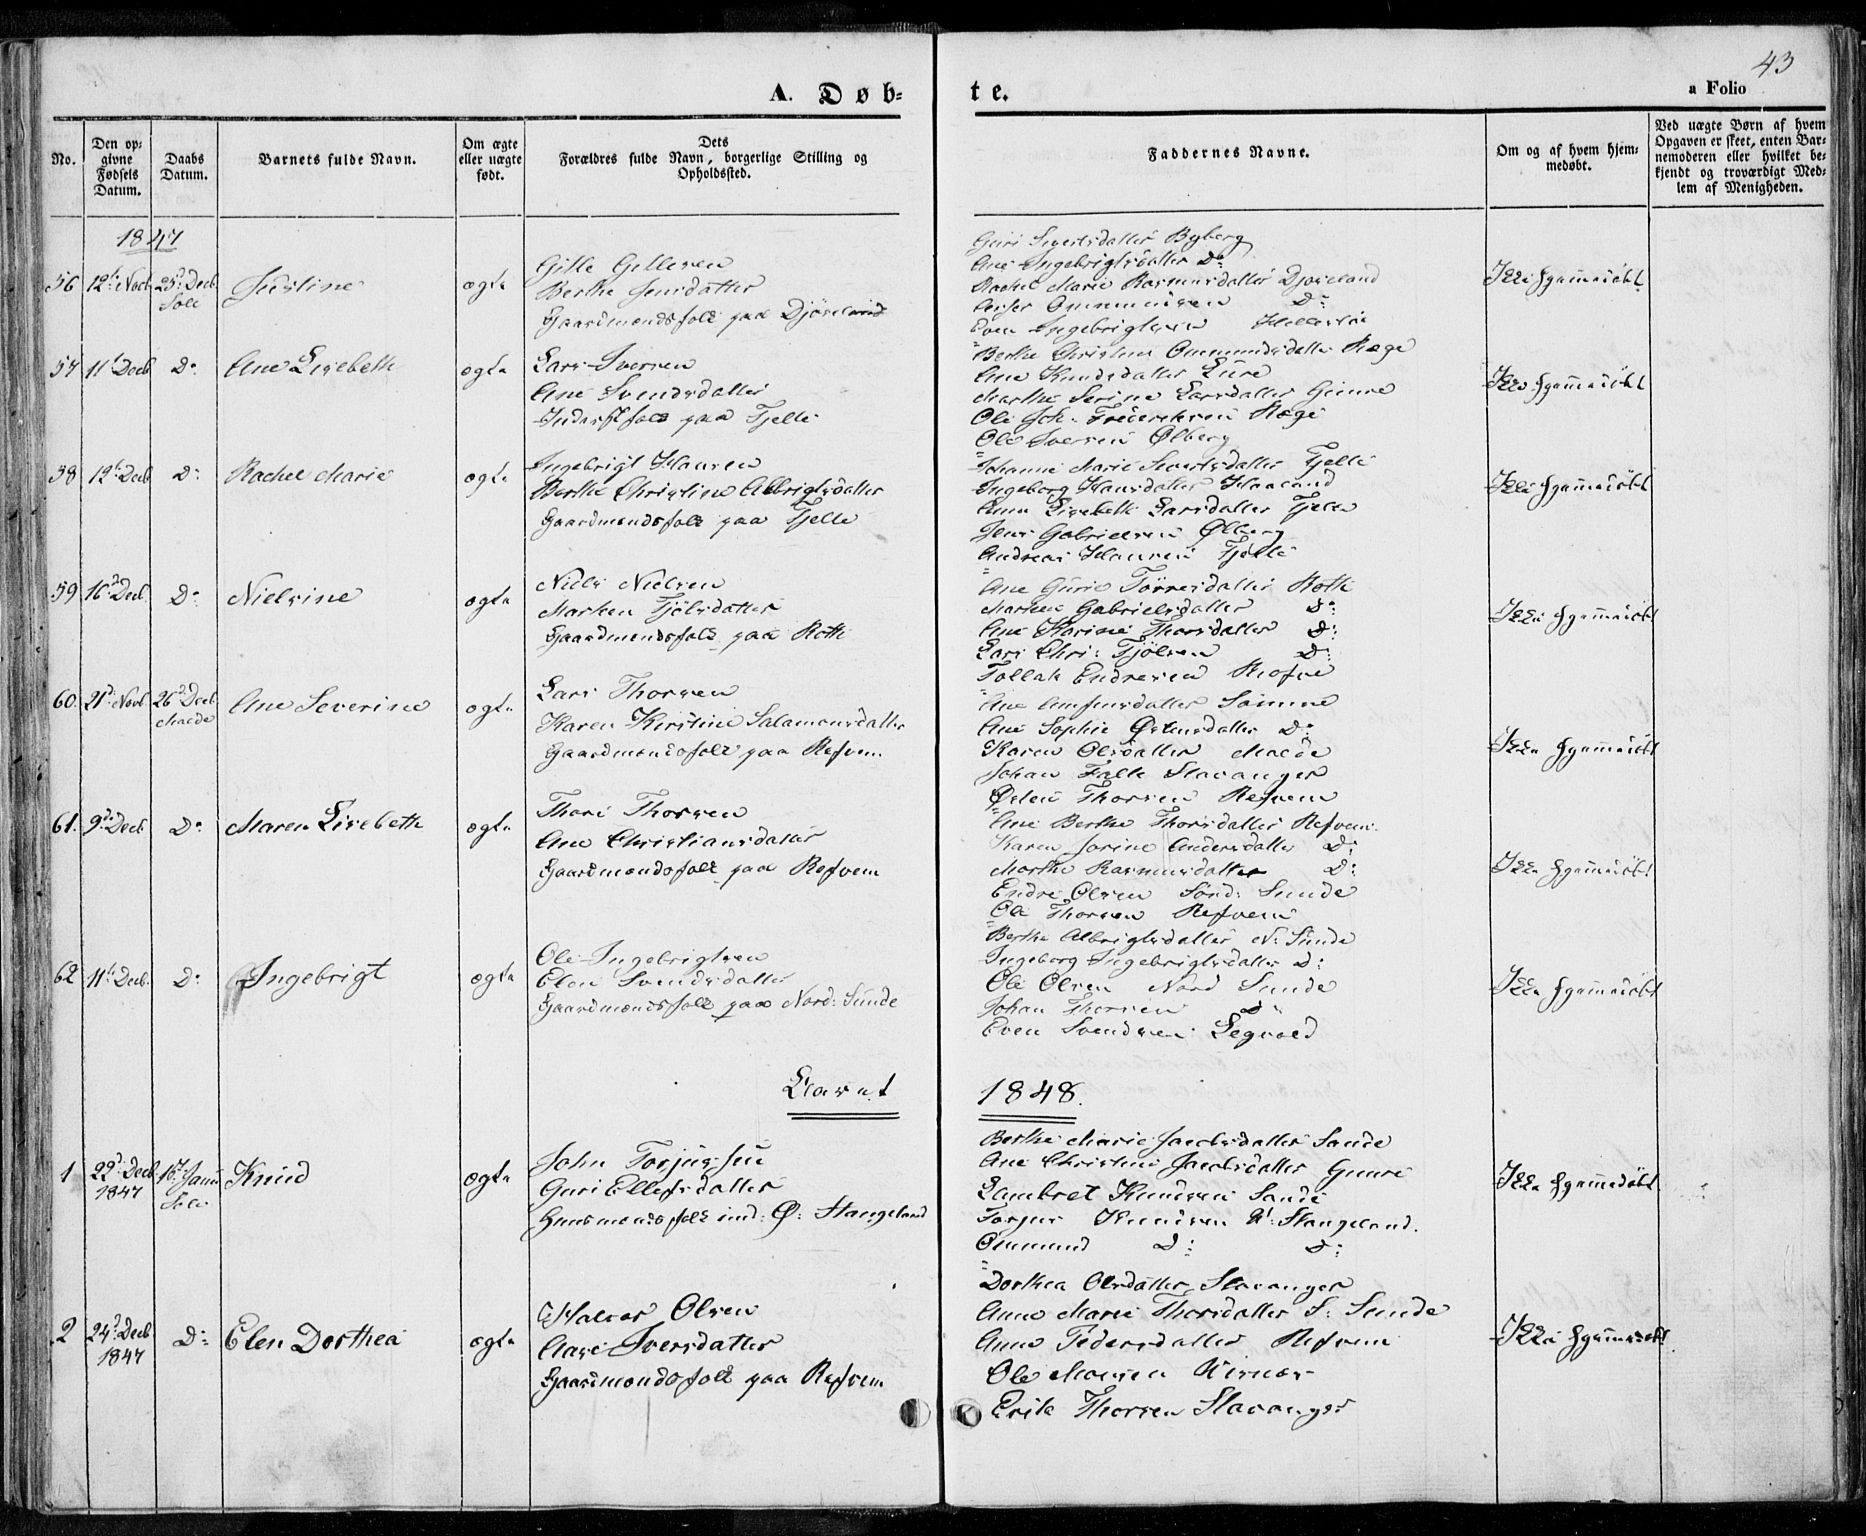 43
A. Døb-
te.
a Folio
No.
Den op-
givne
Fødsels
Datum.
Daabs
Datum.
Barnets fulde Navn.
Om ægte
eller uægte
født.
Dets
Forældres fulde Navn, borgerlige Stilling og
Opholdssted.
Faddernes Navne.
Om og af hvem hjem-
medøbt.
Ved uægte Børn af hvem
Opgaven er skeet, enten Bar-
nemoderen eller hvilket be-
kjendt og troværdigt Med-
lem af Menigheden.
1847
56 12t Novb 25d Decb Sole
ægte
Gitle Gitlesen
Berthe Jensdatter
Gaardmandsfolk paa
Guri Sivertsdatter Byberg
Ane Ingebrigtsdatter Do
Rachel Marie Rasmusdatter
Ommundsen Do
Even Ingebrigtsen
Ikke hjemmedøbt
57 11t Decb Do Ane Lisebeth ægte
Lars Iversen
Ane Svendsdatter
paa Tjelle
Berthe Christine Ommundsdatter Ræge
Ane Knudsdatter
Marthe Serine Larsdatter
Ole Joh. Frederiksen Ræge
Ole Iversen Ølberg
Ikke hjemmedøbt
58 12t Decb Do Rachel Marie ægte
Ingebrigt Hansen
Berthe Christine Albrigtsdatter
Gaardmandsfolk paa Tjelle
Johanne Marie Sivertsdatter Tjelle
Ingeborg Hansdatter Haaland
Anna Lisebeth Larsdatter Tjelle
Jens Gabrielsen Ølberg
Andreas Hansen Tjelle
Ikke hjemmedøbt
59 16d Decb Do Nielsine ægte
Niels Nielsen
Marthen Tjølsdatter
Gaardmandsfolk paa Roth
Ane Gurie Tørresdatter Roth
Marthen Gabrielsdatter Do
Ane Karine Thorsdatter Do
Lars Chr: Tjølsen Do
Tollak Endresen
Ikke hjemmedøbt
60. 21d Novb 26d Decb Malde Ane Severine ægte
Lars Thorsen
Karen Kirstine Salamonsdatter
Gaardmandsfolk paa Refvem
Ane Amfinsdatter Sømme
Ane Sophie Østensdatter Do
Karen Olsdatter Malde
Johan Falk Stavanger
Østen Thorsen Refvem
Ikke hjemmedøbt
61. 9d Decb Do Maren Lisebeth ægte
Thore Thorsen
Ane Christiansdatter
Gaardmandsfolk paa Refvem
Ane Berthe Thorsdatter Refvem
Karen Jorine Andersdatter Do
Marthe Rasmusdatter Do
Endre Olsen Sønd: Sunde
Ole Thorsen Refvem
Ikke hjemmedøbt
62 11t Decb. Do Ingebrigt ægte
Ole Ingebrigtsen
Elen Svendsdatter
Gaardmandsfolk paa Nord: Sunde
Berthe Albrigtsdatter N: Sunde
Ingeborg Ingebrigtsdatter Do
Ole Olsen Nord Sunde
Johan Thorsen Do
Even Svendsen
Ikke hjemmedøbt
Aaret 1848.
1 22d Decb 1847 16d Janu Sole Knud ægte
John Torjussen
Guri Ellefsdatter
Huusmandsfolk und: Ø: Stangeland
Berthe Marie Jacobsdatter Sande
Ane Christine Jacobsdatter
Lambret Knudsen Sande
Torjus Knudsen Stangeland.
Ommund Do Do
Ikke hjemmedøbt
2 24d Decb 1847 Do Elen Dorthea ægte
Halvor Olsen
Iversdatter
Gaardmandsfolk paa Refvem
Dorthea Olsdatter Stavanger
Anne Marie Thorsdatter S: Sunde
Anne Pedersdatter Refvem
Ole Monsen
Erik Thorsen Stavanger
Ikke hjemmedøbt